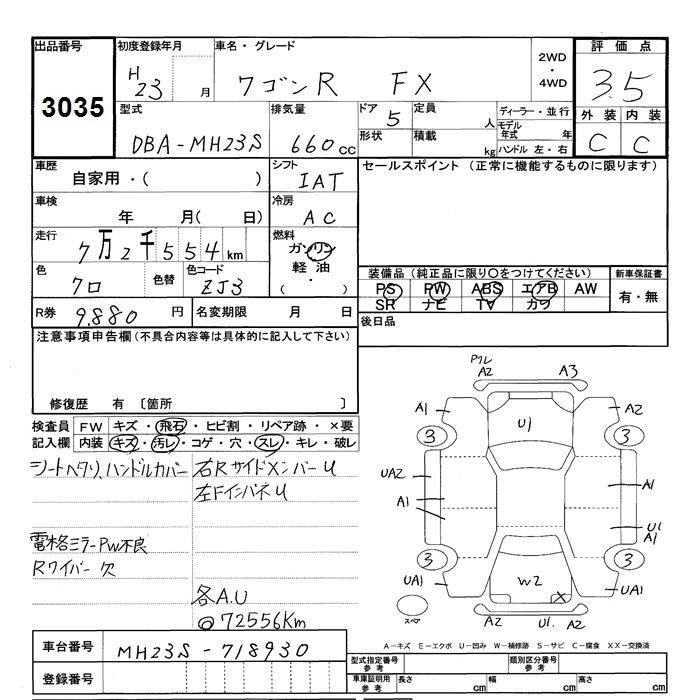 出品番号
3035
初度登録年月
H
23 月
車名・グレード
ワゴンR FX
2WD
・
4WD
評価点
3.5
型式
DBA-MH23S
排気量
660cc
ドア
5
定員
人
形状
積載
kg
ディーラー・並行
モデル
年式 年
ハンドル 左・右
外装 内装
C C
車歴
自家用・( )
シフト
IAT
セールスポイント (正常に機能するものに限ります)
車検
年 月( 日)
冷房
AC
走行
7万2千554km
燃料
ガソリン
軽油
( ・ )
色
クロ
色替
色コード
ZJ3
装備品(純正品に限り○をつけてください)
PS PW ABS エアB AW
SR ナビ TV カワ
新車保証書
有・無
R券 9,880 円
名変期限 月 日
後日品
注意事項申告欄(不具合内容等は具体的に記入して下さい)
修復歴 有 〔箇所 〕
検査員
記入欄
FW キズ・飛石・ヒビ割・リペア跡・×要
内装 キズ・汚レ・コゲ・穴・スレ・キレ・破レ
シートヘタリ、ハンドルカバー
右Rサイドメンバー U
左Fインパネ U
電格ミラーPW不良
Rワイパー欠
各A.U
@72556Km
ワレ
A2 A3
A1 A2
U1
3 3
UA2
A1 A1
U1
A1
3 3
UA1 W2 X UA1
スペア
A2 U1. A2
A-キズ E-エクボ U-凹み W-補修跡 S-サビ C-腐食 XX-交換済
車台番号 MH23S-718930
登録番号
型式指定番号
参考
類別区分番号
参考
車庫証明用
参考
長さ cm
幅 cm
高さ cm